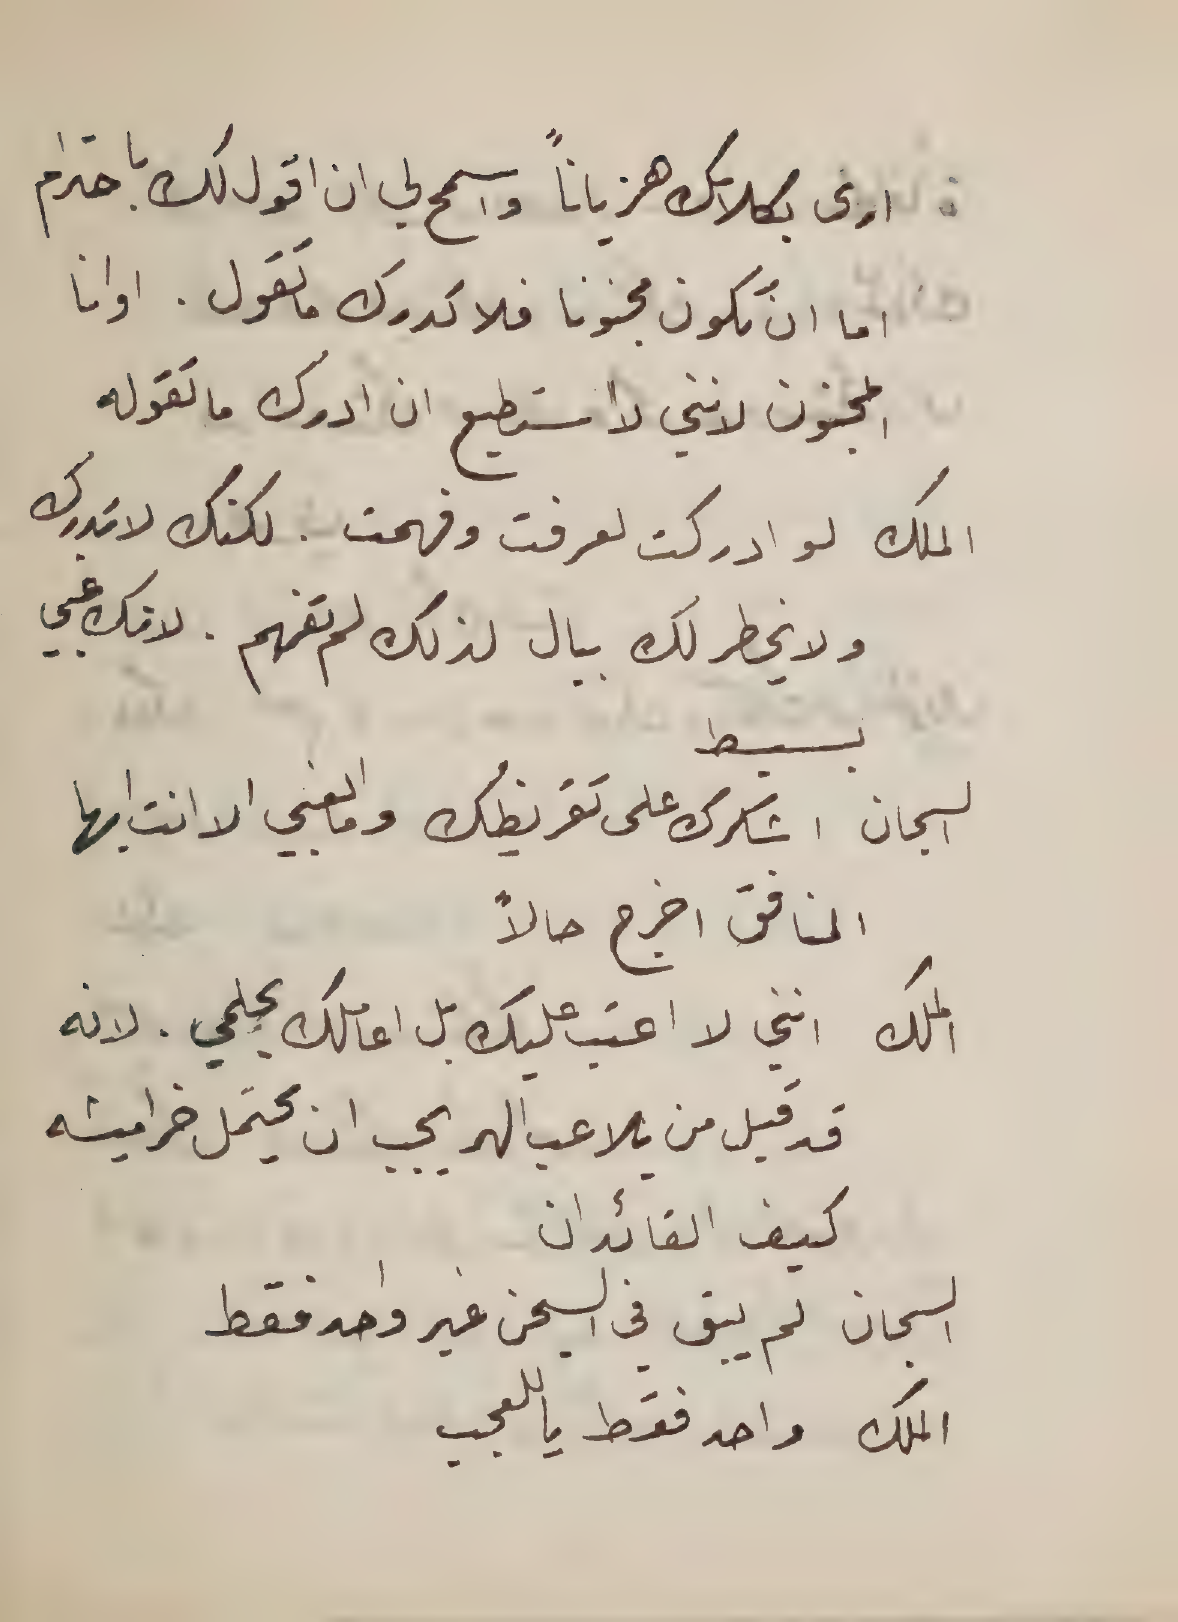 ارى بكلامك هزياناً واسمح لي ان اقول لك باحترام
اما ان تكون مجنونا فلا تدرك ما تقول . او انا
المجنون لانني لا استطيع ان ادرك ما تقوله
الملك لو ادركت لعرفت وفهمت . لكنك لا تدرك
ولا يخطر لك ببال لذلك لم تفهم . لانك غبي
بسيط
السجان اشكرك على تقريظك وما الغبي الا انت ايها
المنافق اخرج حالاً
الملك انني لا اعتب عليك بل اعاملك بحلمي . لانه
قد قيل من يلاعب الهر يجب ان يحتمل خراميشه
كيف القائدان
السجان لم يبق في السجن غير واحد فقط
الملك واحد فقط يا للعجب